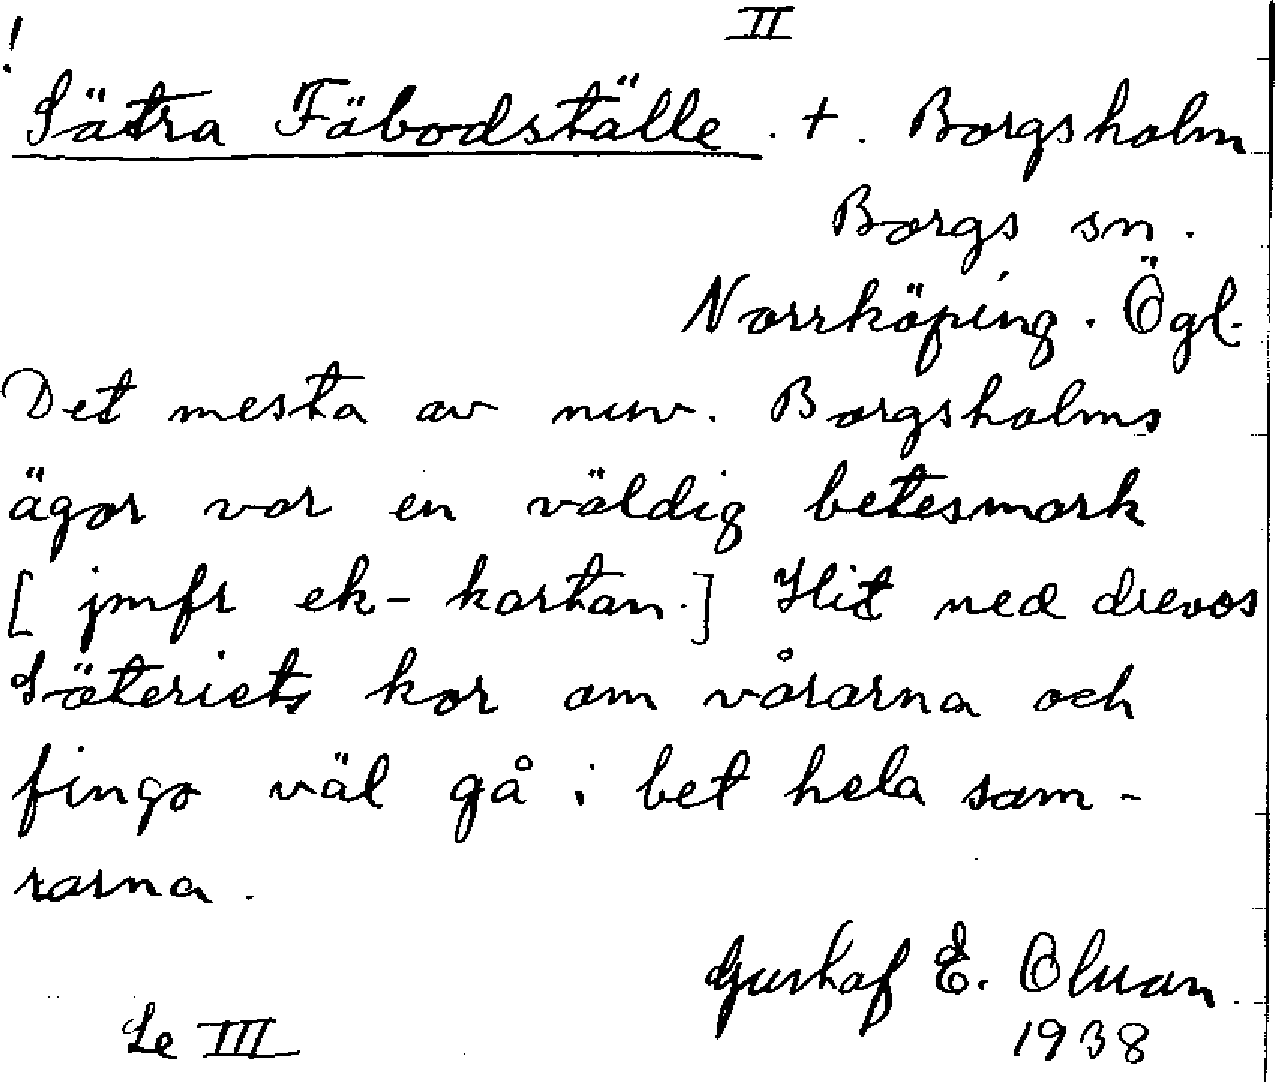 !
II
Sätra Fäbodställe . + . Borgsholm
Borgs sn.
Norrköping. Ögl.
Det mesta av nuv. Borgsholms
ägor var en väldig betesmark
[ jmfr ek-kartan.] Hit ned drevos
Säteriets kor om vårarna och
fingo väl gå i bet hela som-
rarna.
Gustaf E. Olsson.
Se III
1938